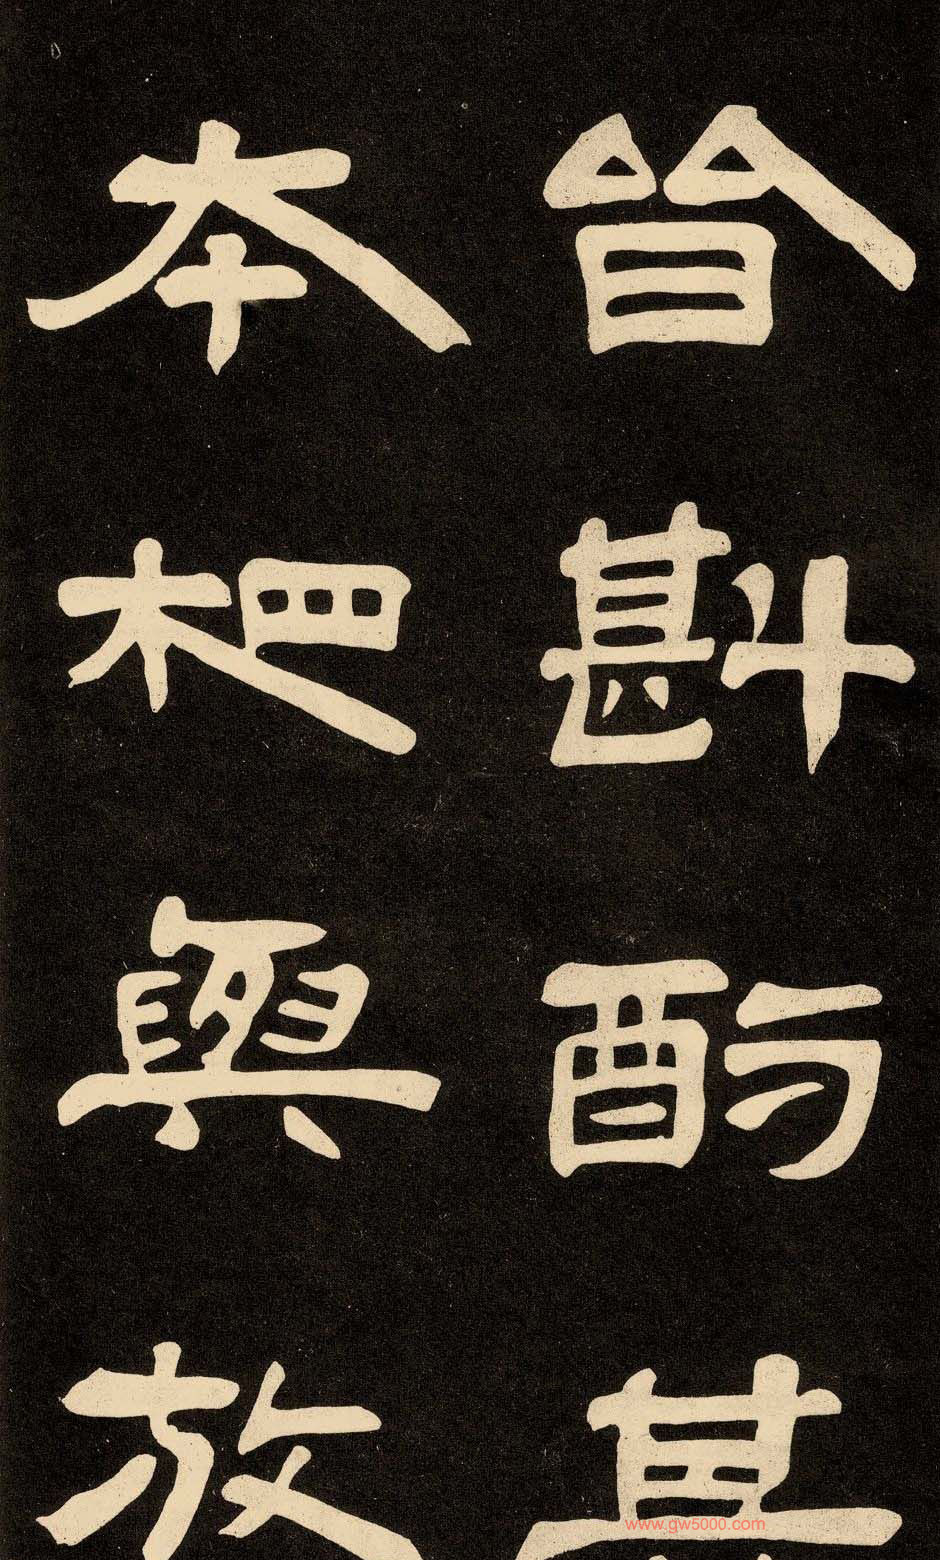 皆斟酌其
本杷與放
www.gw5000.com